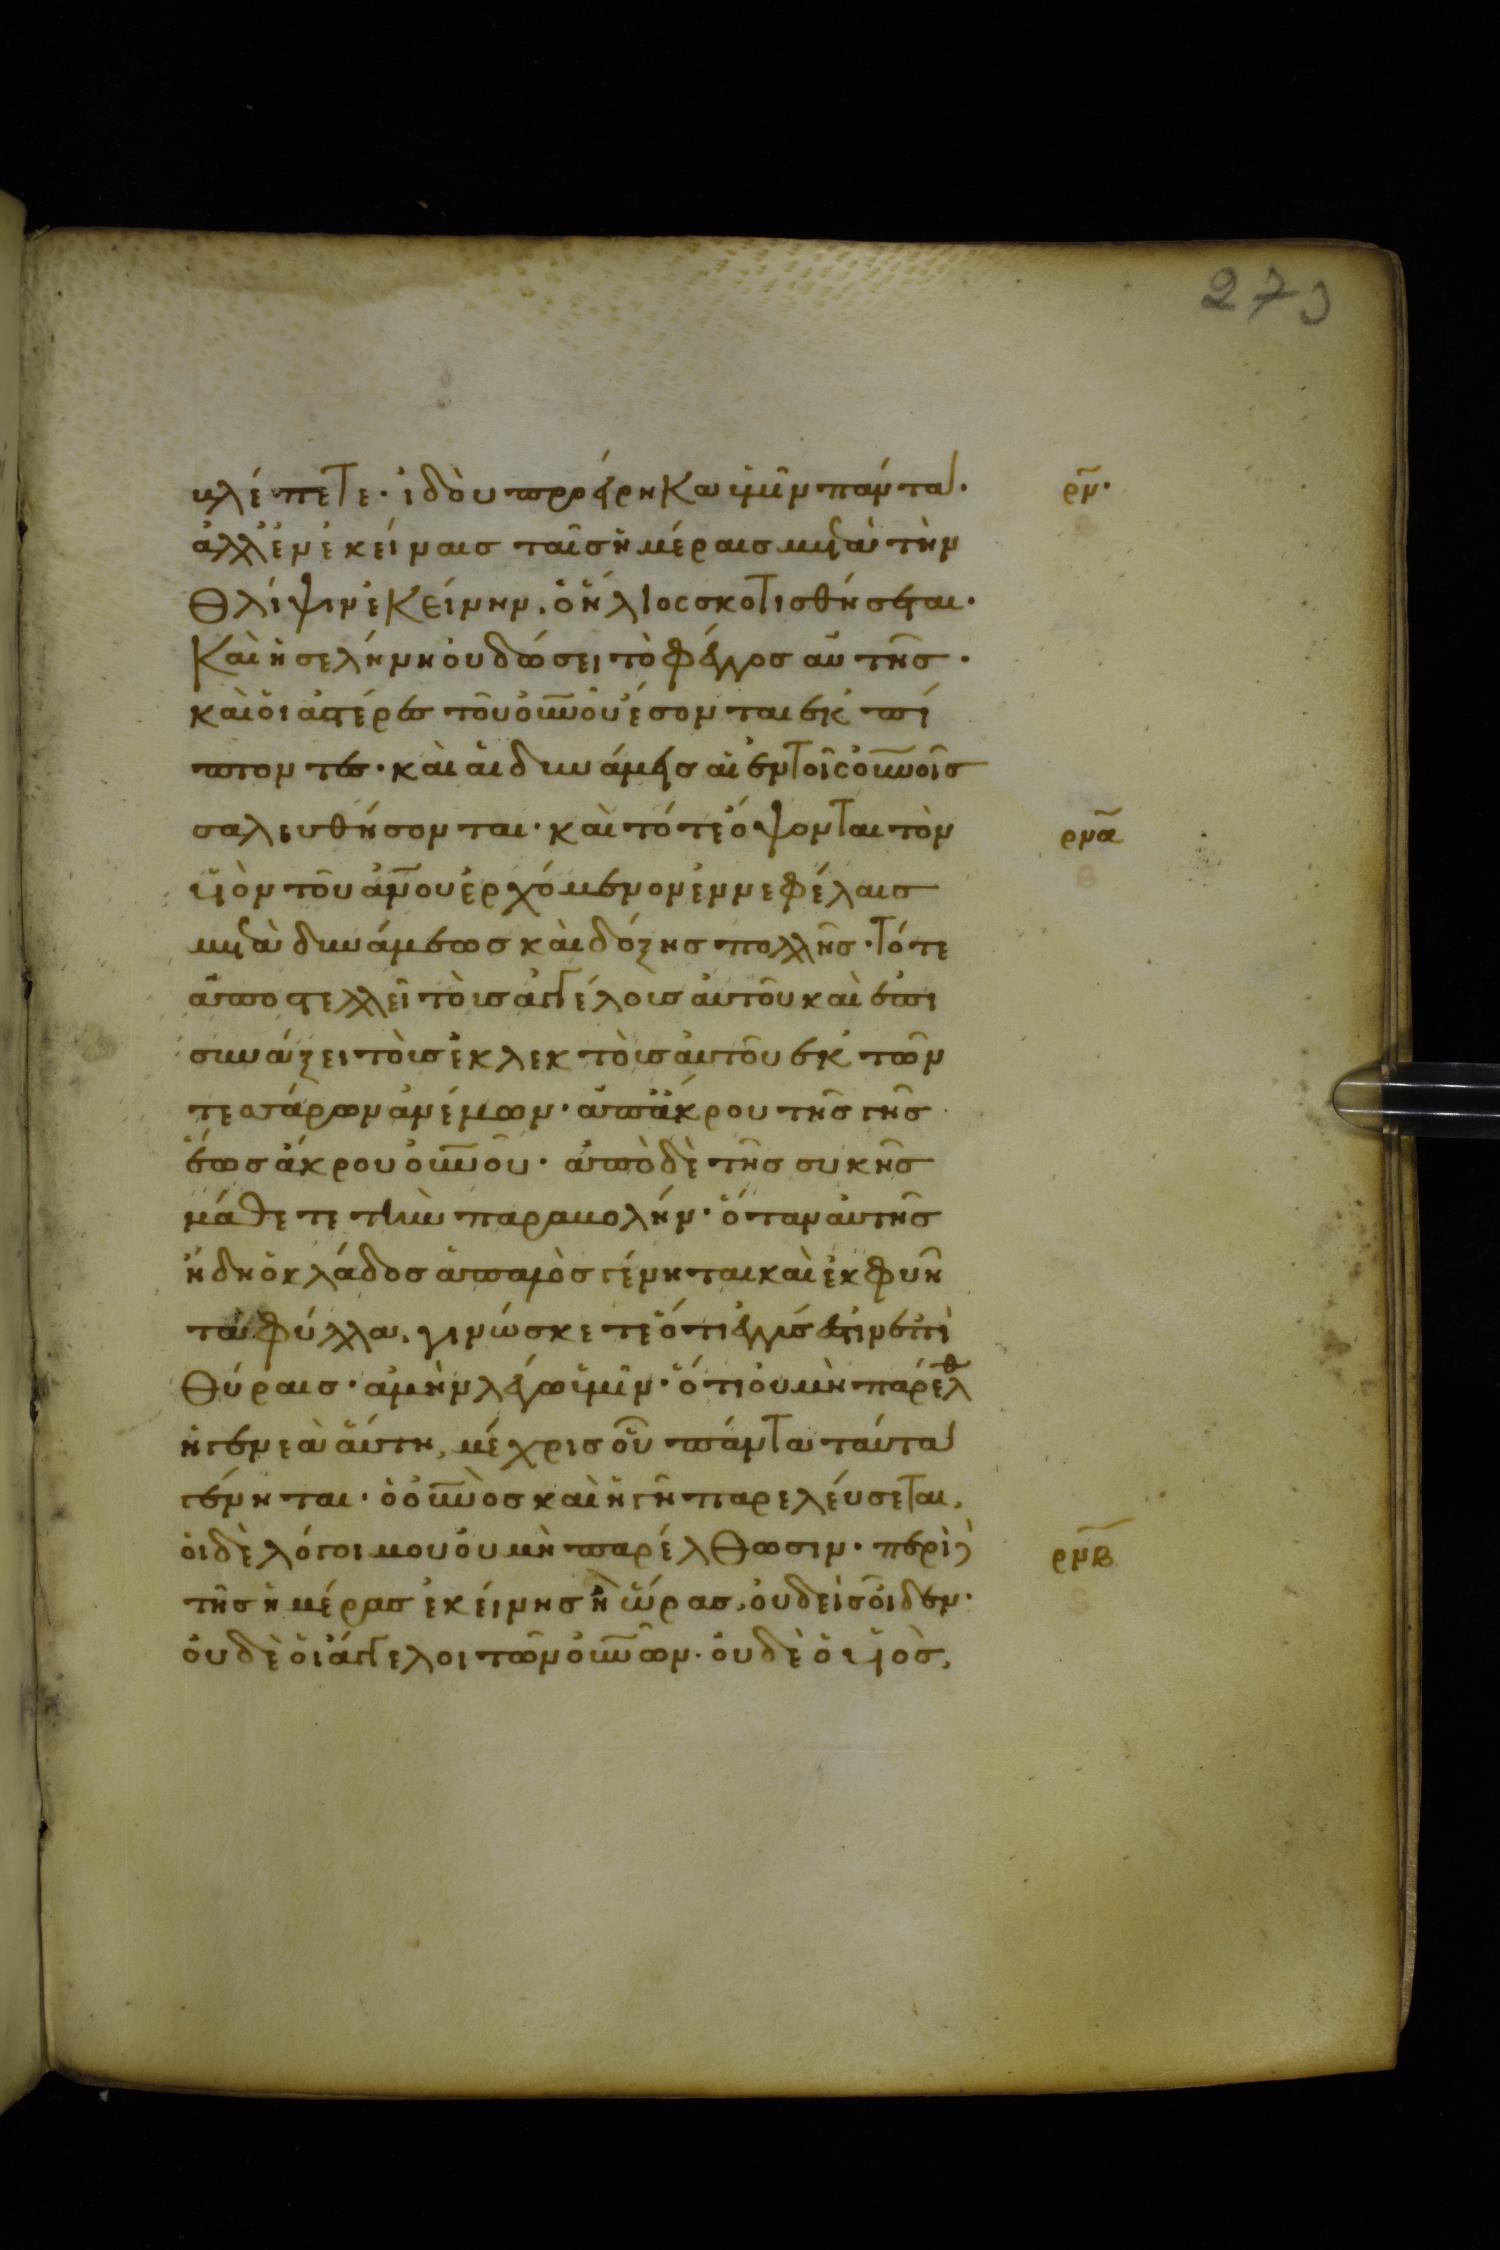 273
βλέπετε· ἰδοὺ προείρηκα ὑμῖν πάντα· ρμ·
ἀλλ' ἐν ἐκείναις ταῖς ἡμέραις μετὰ τὴν
θλίψιν ἐκείνην, ὁ ἥλιος σκοτισθήσεται·
καὶ ἡ σελήνη οὐ δώσει τὸ φέγγος αὐτῆς·
καὶ οἱ ἀστέρες τοῦ οὐνοῦ ἔσονται ἐκπί
πτοντες· καὶ αἱ δυνάμεις αἱ ἐν τοῖς οὐνοῖς
σαλευθήσονται· καὶ τότε ὄψονται τὸν ρμα
υἱὸν τοῦ ἀνου ἐρχόμενον ἐν νεφέλαις
μετὰ δυνάμεως καὶ δόξης πολλῆς· τότε
ἀποστελλεῖ τοὺς ἀγγέλους αὐτοῦ καὶ ἐπι
συνάξει τοὺς ἐκλεκτοὺς αὐτοῦ ἐκ τῶν
τεσσάρων ἀνέμων· ἀπ' ἄκρου τῆς γῆς
ἕως ἄκρου οὐνοῦ· ἀπὸ δὲ τῆς συκῆς
μάθετε τὴν παραβολήν· ὅταν αὐτῆς
ἤδη ὁ κλάδος ἁπαλὸς γένηται καὶ ἐκφυῆ
τὰ φύλλα, γινώσκετε ὅτι ἐγγύς ἐστιν ἐπὶ
θύραις· ἀμὴν λέγω ὑμῖν· ὅτι οὐ μὴ παρέλθ
ἡ γενεὰ αὕτη, μέχρις οὗ πάντα ταῦτα
γένηται· ὁ οὐνὸς καὶ ἡ γῆ παρελεύσεται,
οἱ δὲ λόγοι μου οὐ μὴ παρέλθωσιν· περὶ ρμβ
τῆς ἡμέρας ἐκείνης ἢ ὥρας, οὐδεὶς οἶδεν·
οὐδὲ οἱ ἄγγελοι τῶν οὐνῶν· οὐδὲ ὁ υἱὸς,